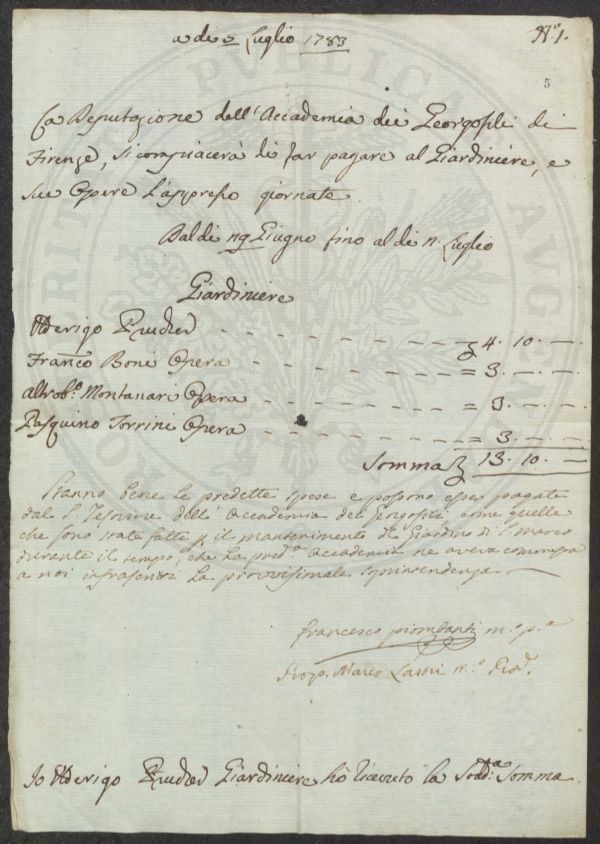 a dì 5 Luglio 1783
N.º 1.
5
La Deputazione dell'Accademia dei Georgofili di
Firenze, si compiacerà di far pagare al Giardiniere, e
sue Opere l'appresso giornate.
Dal dì 29 Giugno fino al dì Luglio
Giardiniere
Franc.º Boni Opera - - - - = 3. — . —
Montanari Opera - - - - = 3. — . —
Pasquino Torrini Opera - - - - = 3. — . —
Somma 13. 10. —
Stanno bene le predette spese e possono esser pagate
dal S. Tesoriere dell'Accademia dei Georgofili come quelle
che sono state fatte p il mantenimento del Giardino di S. Marco
durante il tempo, che la pred.ª Accademia ne aveva commessa
a noi infrascritti la provvisionale soprintendenza —
Francesco Piombanti m.º p.ª
Marco Lastri m.º
Io Giardiniere hò ricevuto la Sodd.ª Somma
PUBLICA
AVGENDAE